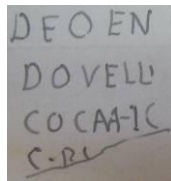 DEOEN
DOVELLI
COCAA-1C
C.BL